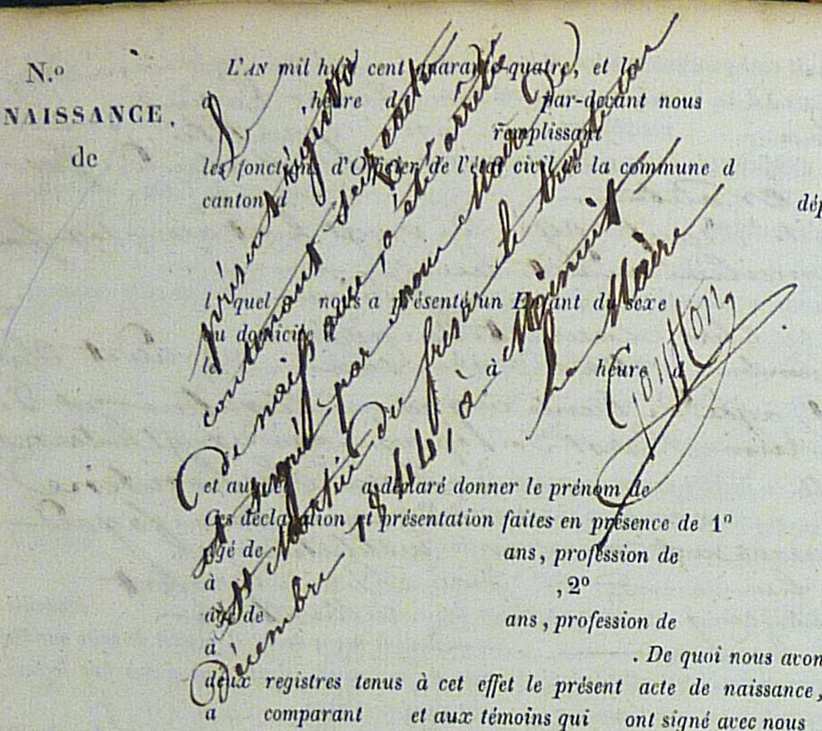 N.º
NAISSANCE,
de
L'AN mil huit cent quarante-quatre, et le
à heure d par-devant nous
remplissant
les fonctions d'Officier de l'état civil de la commune d
canton d dép
l quel nous a présenté un Enfant du sexe
au domicile d
le à heure d
et auquel a déclaré donner le prénom de
Ces déclaration et présentation faites en présence de 1º
âgé de ans, profession de
à , 2º
âgé de ans, profession de
à . De quoi nous avon
deux registres tenus à cet effet le présent acte de naissance,
a comparant et aux témoins qui ont signé avec nous
Le
présent registre
contenant seize actes
De naissance, a été arrêté
et signé par nous Maire De
St Martin du fresne le trente un
Décembre 1844, à Minuit
Le Maire